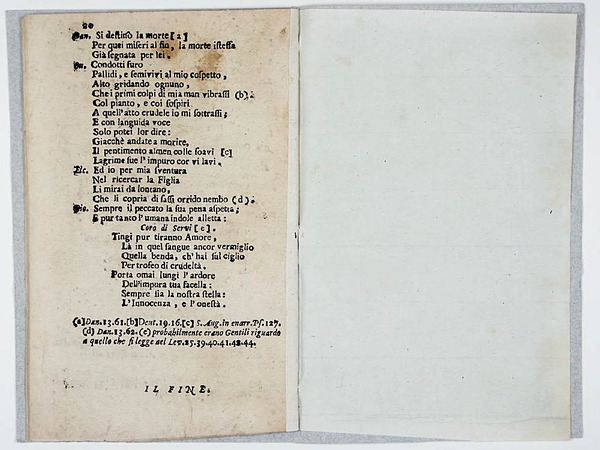 20
Dan. Si destinò la morte [a]
Per quei miseri al fin, la morte istessa
Già segnata per lei.
Condotti furo
Pallidi, e semivivi al mio cospetto,
Alto gridando ognuno,
Che i primi colpi di mia man vibrassi (b):
Col pianto, e coi sospiri
A quell'atto crudele io mi sottrassi;
E con languida voce
Solo potei lor dire:
Giacchè andate a morire,
Il pentimento almen colle soavi [c]
Lagrime sue l'impuro cor vi lavi.
Elc. Ed io per mia sventura
Nel ricercar la Figlia
Li mirai da lontano,
Che li copria di sassi orrido nembo (d).
Gio. Sempre il peccato la sua pena aspetta;
E pur tanto l'umana indole alletta:
Coro di Servi [e].
Tingi pur tiranno Amore,
Là in quel sangue ancor vermiglio
Quella benda, ch'hai sul ciglio
Per trofeo di crudeltà.
Porta omai lungi l'ardore
Dell'impura tua facella:
Sempre sia la nostra stella:
L'Innocenza, e l'onestà.
(a) Dan. 13. 61. [b] Deut. 19. 16. [c] S. Aug. in enarr. Ps. 127.
(d) Dan. 13. 62. (e) probabilmente erano Gentili riguardo
a quello che si legge nel Lev. 25. 39. 40. 41. 42. 44.
IL FINE.